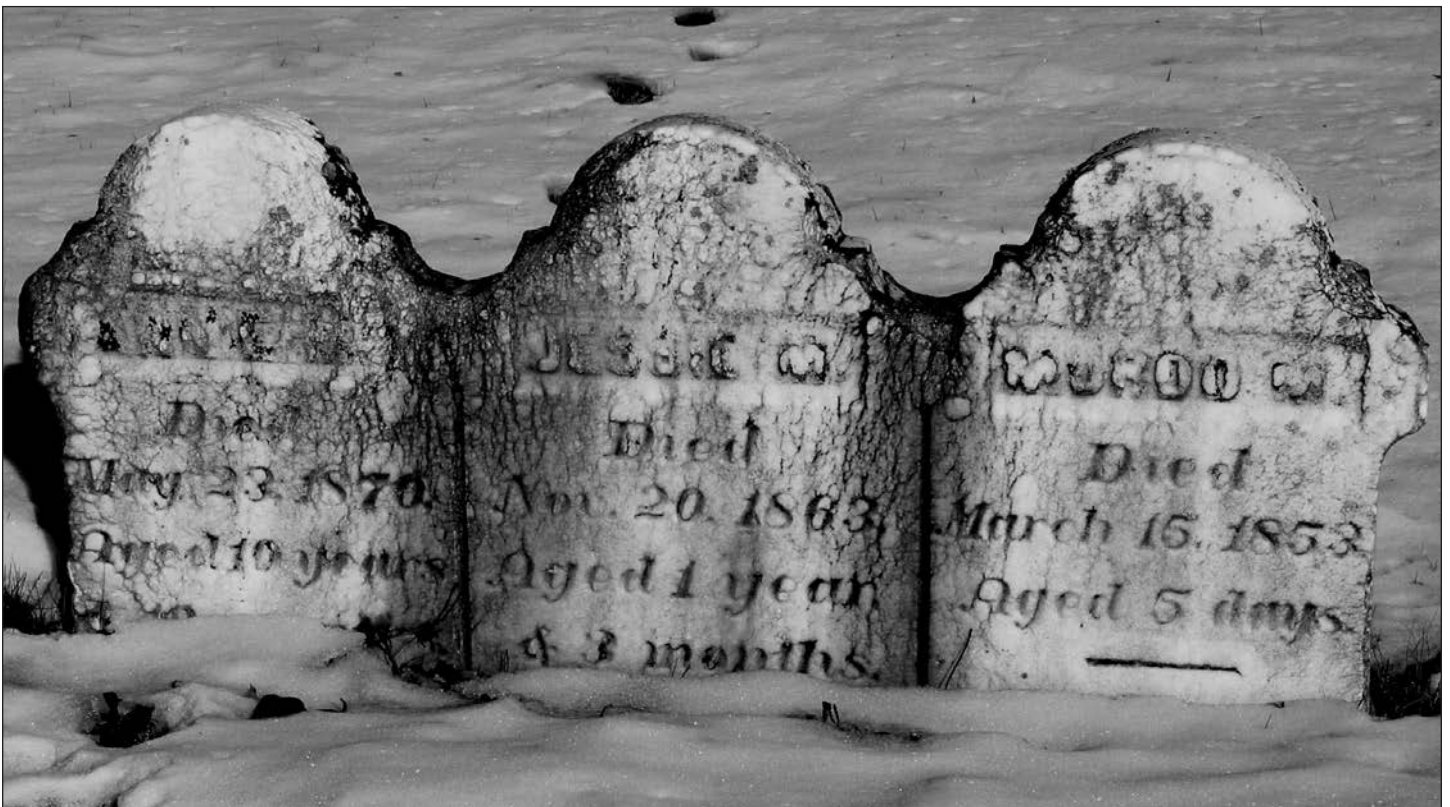 Died
May 23. 1870.
Aged 10 years
JESSIE M
Died
Nov. 20. 1863.
Aged 1 year
& 3 months.
MURDO M
Died
March 15. 1853
Aged 5 days